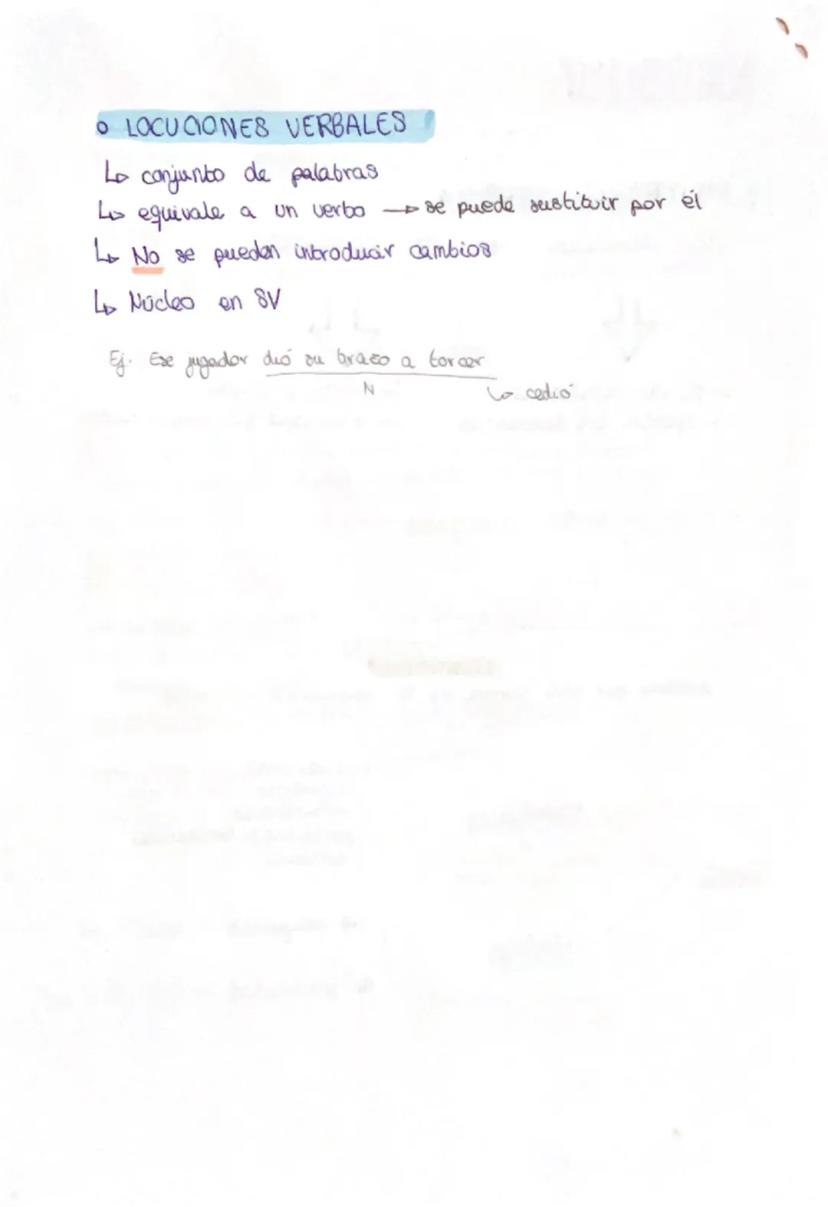 o LOCUCIONES VERBALES
↳ conjunto de palabras
↳ equivale a un verbo → se puede sustituir por él
↳ No se pueden introducir cambios
↳ Núcleo en SV
Ej. Ese jugador dió su brazo a torcer
N ↳ cedió